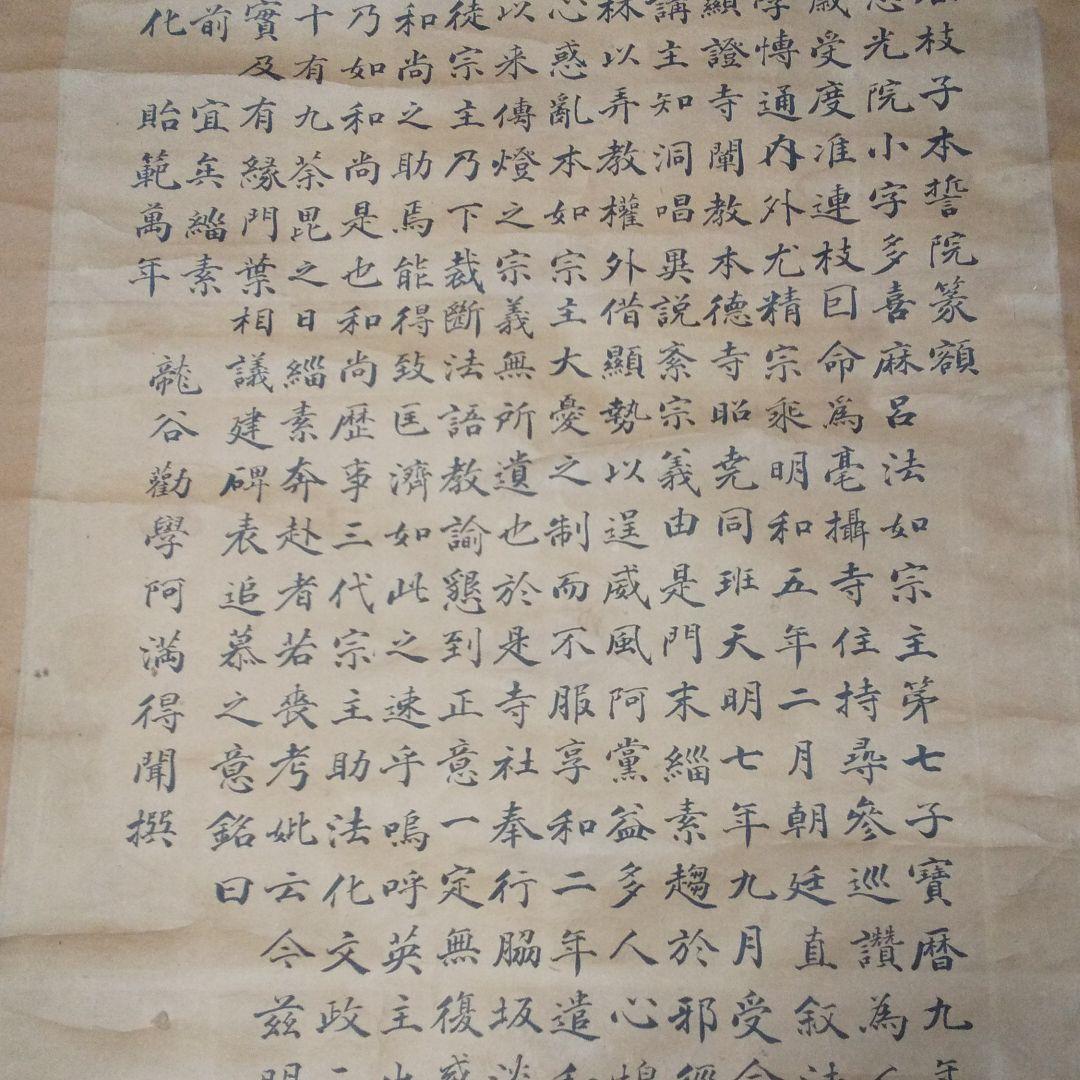 枝子本誓院篆額
光院小字多喜麻呂法如宗主第七子寶曆九
受度准連枝回命爲毫攝寺住持尋參巡讚為
博通內外尤精宗乘明和五年二月朝廷直叙
顯證寺闡教本德寺昭尭同班天明七年九月受
講主知洞唱異說紊宗義由是門末緇素趨於邪
林以弄教權外借顯勢以逞威風阿黨益多人心
心惑亂本如宗主大憂之制而不服享和二年遣
以来傳燈之宗義無所遺也於是寺社奉行脇坂
徒宗主乃下裁斷法語教諭懇到正意一定無復
和尚之助焉能得致匡濟如此之速乎嗚呼英主
乃如和尚是也和尚歷事三代宗主助法化文政
十有九荼毘之日緇素奔赴者若喪考妣云今茲
實及有緣門葉相議建碑表追慕之意銘曰
前宜矣緇素
化貽範萬年 龍谷勸學阿滿得聞撰